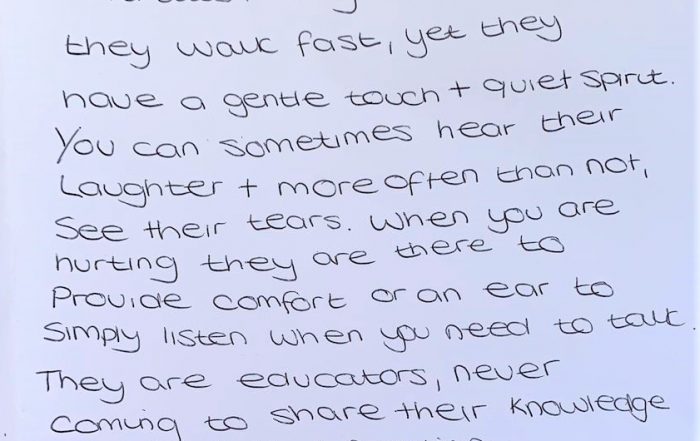 they walk fast, yet they
have a gentle touch + quiet spirit.
You can sometimes hear their
Laughter + more often than not,
See their tears. When you are
hurting they are there to
Provide comfort or an ear to
Simply listen when you need to talk.
They are educators, never
coming to share their knowledge